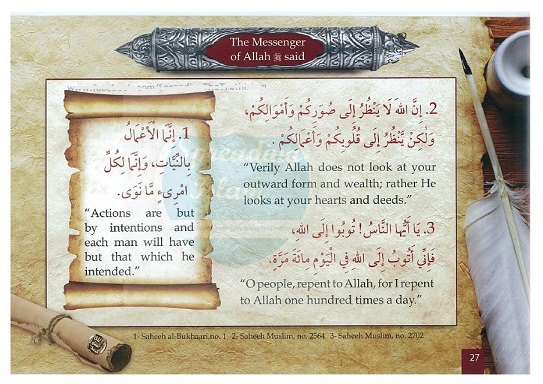 The Messenger
of Allah ﷺ said
1. إِنَّمَا الْأَعْمَالُ
بِالنِّيَّاتِ، وَإِنَّمَا لِكُلِّ
امْرِيءٍ مَّا نَوَى.
“Actions are but
by intentions and
each man will have
but that which he
intended.”
2. إِنَّ اللهَ لَا يَنْظُرُ إِلَى صُوَرِكُمْ وَأَمْوَالِكُمْ،
وَلَكِنْ يَنْظُرُ إِلَى قُلُوبِكُمْ وَأَعْمَالِكُمْ.
“Verily Allah does not look at your
outward form and wealth; rather He
looks at your hearts and deeds.”
3. يَا أَيُّهَا النَّاسُ! تُوبُوا إِلَى اللهِ،
فَإِنِّي أَتُوبُ إِلَى اللهِ فِي الْيَوْمِ مِائَةَ مَرَّةٍ.
“O people, repent to Allah, for I repent
to Allah one hundred times a day.”
1- Saheeh al-Bukhaari,no. 1 2- Saheeh Muslim, no. 2564 3- Saheeh Muslim, no. 2702
27